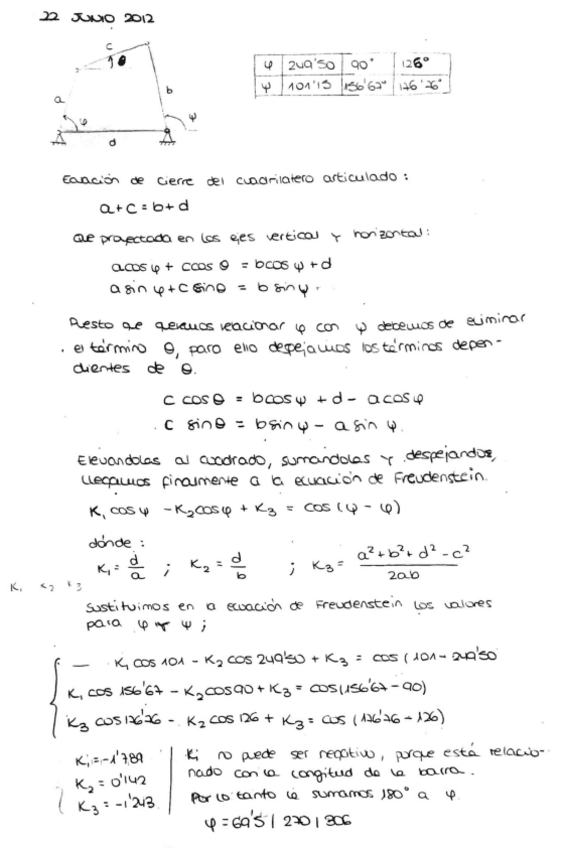 22 JUNIO 2012
c
θ
a
b
φ
ψ
d
φ 249'50 90° 126°
ψ 101'15 156'67° 176'76°
Ecuación de cierre del cuadrilatero articulado:
a+c = b+d
que proyectada en los ejes vertical y horizontal:
a cos φ + c cos θ = b cos ψ + d
a sin φ + c sin θ = b sin ψ.
Puesto que queremos relacionar φ con ψ debemos de eliminar
el término θ, para ello despejamos los términos depen-
dientes de θ.
c cos θ = b cos ψ + d - a cos φ
c sin θ = b sin ψ - a sin φ.
Elevandolas al cuadrado, sumandolas y despejandos,
llegamos finalmente a la ecuación de Freudenstein.
K₁ cos ψ - K₂ cos φ + K₃ = cos (ψ - φ)
dónde:
K₁ = d/a ; K₂ = d/b ; K₃ = a² + b² + d² - c² / 2ab
K₁ K₂ K₃
Sustituimos en a ecuación de Freudenstein los valores
para φ y ψ;
— K₁ cos 101 - K₂ cos 249'50 + K₃ = cos (101 - 249'50
K₁ cos 156'67 - K₂ cos 90 + K₃ = cos (156'67 - 90)
K₃ cos 176'76 - K₂ cos 126 + K₃ = cos (176'76 - 126)
K₁ = -1'789
K₂ = 0'142
K₃ = -1'243
Ki no puede ser negativo, porque está relacio-
nado con la longitud de la barra.
Por lo tanto le sumamos 180° a φ.
φ = 69'5 / 270 / 306